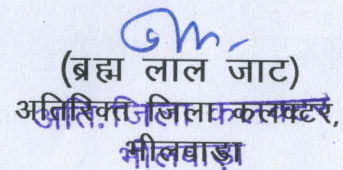 (ब्रह्म लाल जाट)
अतिरिक्त जिला कलक्टर,
भीलवाड़ा